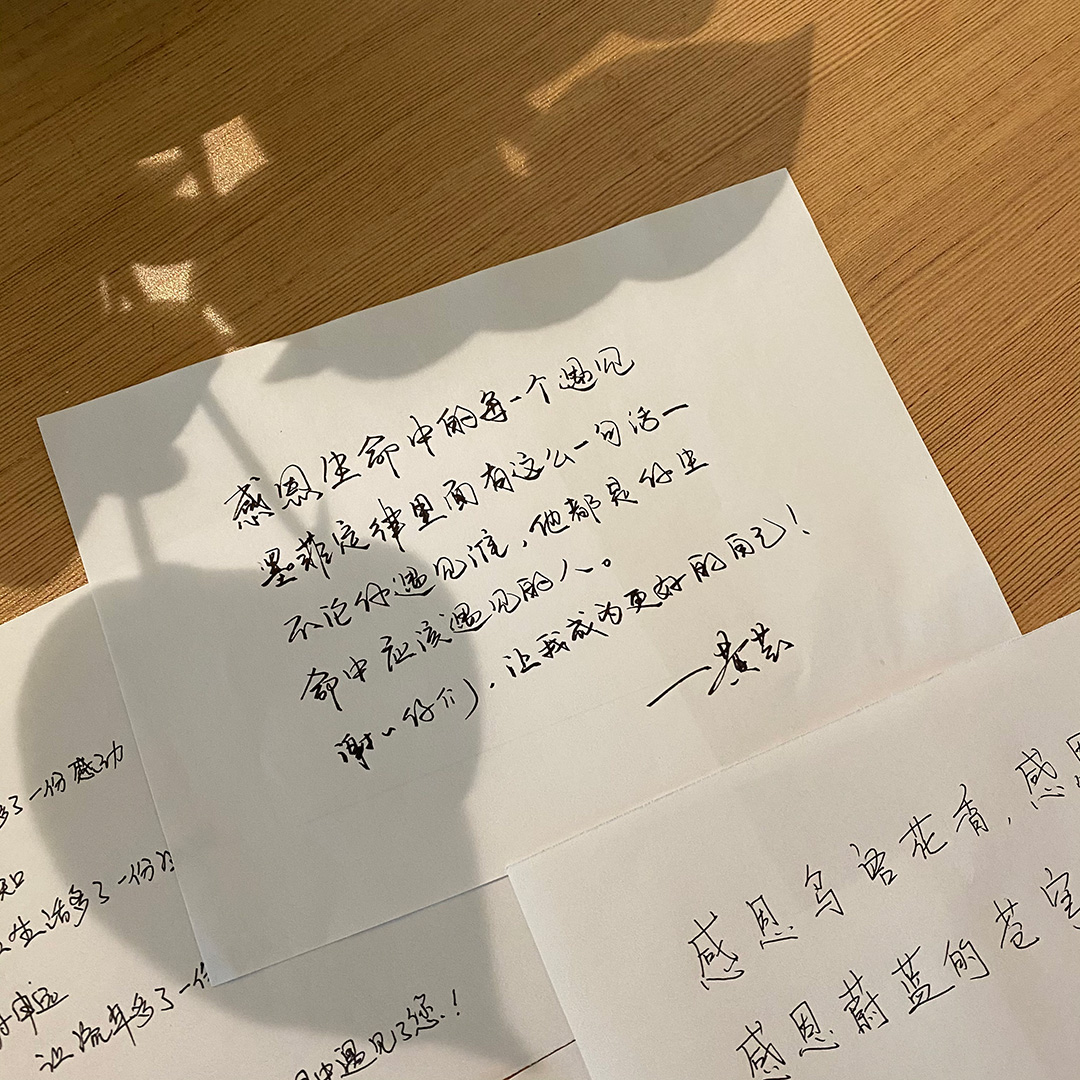 感恩生命中的每一个遇见
墨菲定律里面有这么一句话一
不论你遇见谁，他都是你生
命中应该遇见的人。
谢~你们，让我成为更好的自己！
多了一份感动
知
生活多了一份
让流年多了一份
中遇见了您！
感恩鸟语花香，感恩
感恩蔚蓝的苍穹